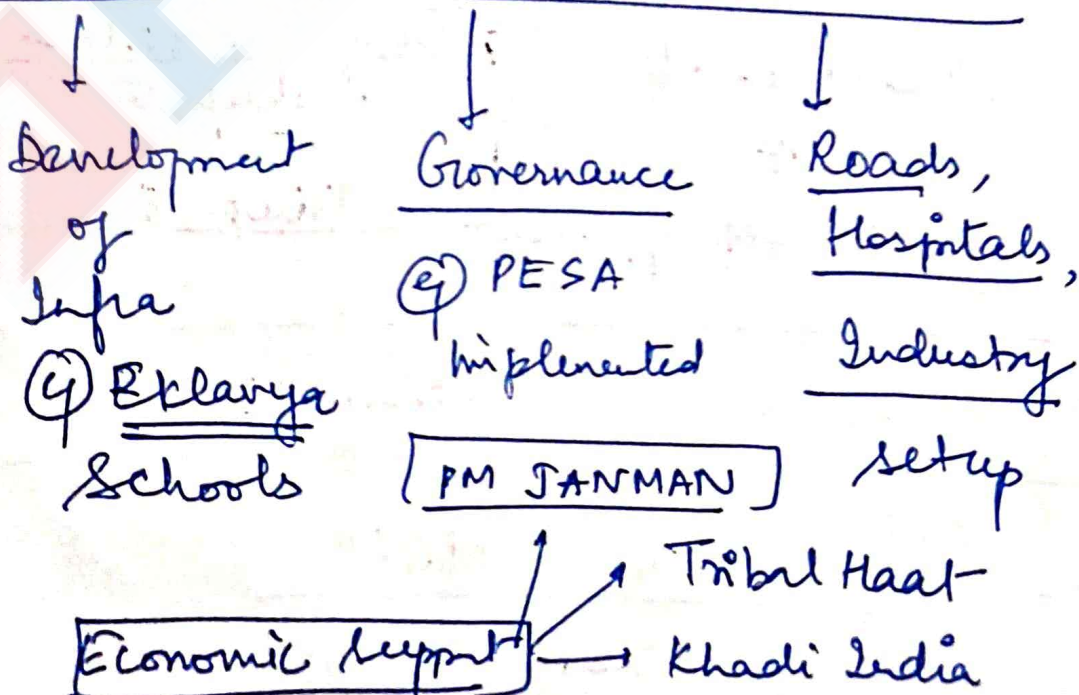 Development
of
Infra
eg Eklavya
Schools
Governance
eg PESA
implemented
PM JANMAN
Roads,
Hospitals,
Industry
setup
Economic Support
Tribal Haat
Khadi India